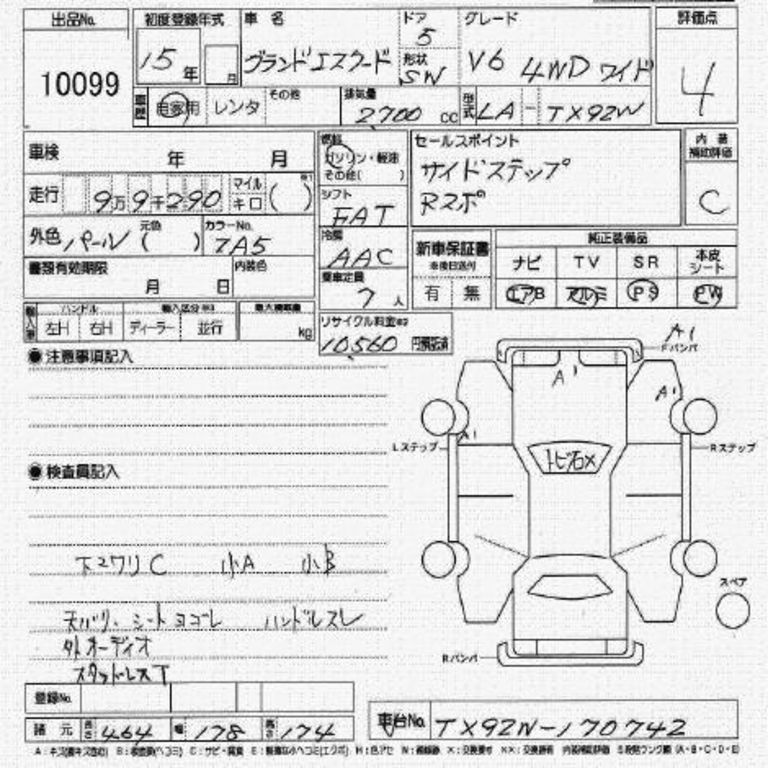 出品No. 初度登録年式 車名 ドア グレード 評価点
10099 15年 月 グランドエスクード 5 V6 4WD ワイド 4
形状 SW
車歴 自家用 レンタ その他 排気量 2700 cc 型式 LA - TX92W
車検 年 月
燃料 ガソリン・軽油 その他( )
セールスポイント
サイドステップ
Rスポ
内装補助評価
C
走行 9万9千290 マイル キロ ( )
シフト FAT
外色 パール 元色 ( ) カラーNo. ZA5
冷房 AAC
新車保証書 ※後日送付
有 無
純正装備品
ナビ TV SR 本皮シート
エアB アルミ PS PW
書類有効期限 月 日 内装色
乗車定員 7人
ハンドル
左H 右H ディーラー 並行 kg
リサイクル料金
10,560
●注意事項記入
A1
Fバンパ
A1
A1
A1
Lステップ Rステップ
トビ石X
●検査員記入
下コワリC 小A 小B
スペア
天バリ、シートヨゴレ ハンドルスレ
外オーディオ
スタッドレスT
Rバンパ
登録No.
諸元 長さ 464 幅 178 高さ 174
車台No. TX92W-170742